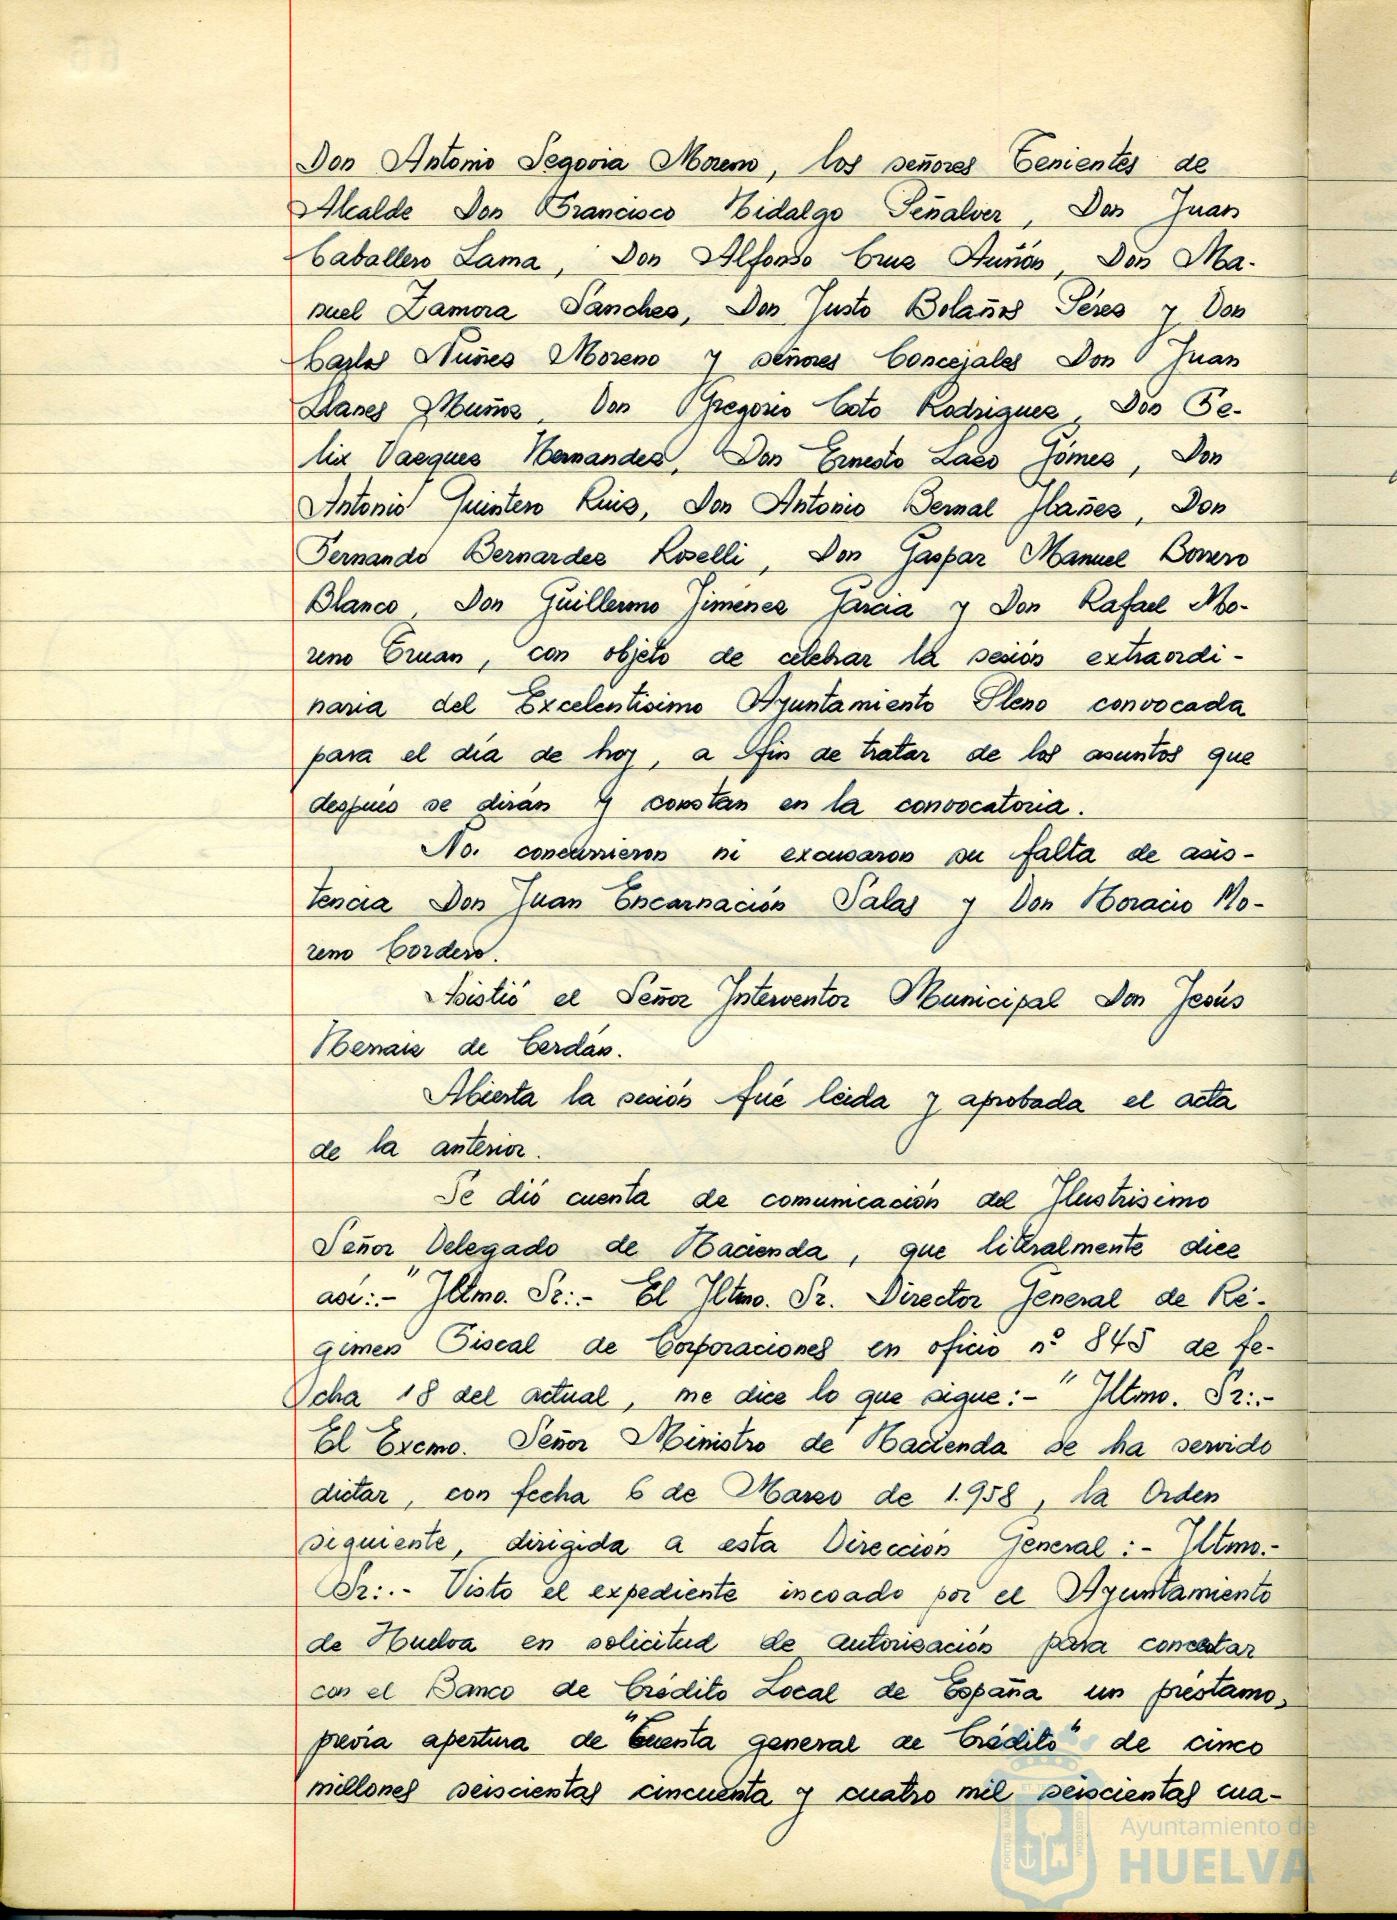 Don Antonio Segovia Moreno, los señores Tenientes de
Alcalde Don Francisco Hidalgo Peñalver, Don Juan
Caballero Lama, Don Alfonso Cruz Auñón, Don Ma-
nuel Zamora Sanchez, Don Justo Bolaños Pérez y Don
Carlos Nuñez Moreno y señores Concejales Don Juan
Llanes Muñoz, Don Gregorio Coto Rodriguez, Don Fe-
lix Vazquez Hernandez, Don Ernesto Lazo Gómez, Don
Antonio Quintero Ruiz, Don Antonio Bernal Ibañez, Don
Fernando Bernardez Roselli, Don Gaspar Manuel Borrero
Blanco, Don Guillermo Jimenez Garcia y Don Rafael Mo-
reno Eruan, con objeto de celebrar la sesión extraordi-
naria del Excelentisimo Ayuntamiento Pleno convocada
para el día de hoy, a fin de tratar de los asuntos que
después se dirán y constan en la convocatoria.
No. concurrieron ni excusaron su falta de asis-
tencia Don Juan Encarnación Salas y Don Horacio Mo-
reno Cordero.
Asistió el Señor Interventor Municipal Don Jesús
Hernaiz de Cerdán.
Abierta la sesión fué leida y aprobada el acta
de la anterior.
Se dió cuenta de comunicación del Ilustrisimo
Señor Delegado de Hacienda, que literalmente dice
así:.- "Iltmo. Sr:.- El Iltmo. Sr. Director General de Ré-
gimen Fiscal de Corporaciones en oficio nº 845 de fe-
cha 18 del actual, me dice lo que sigue:- "Iltmo. Sr:.-
El Excmo. Señor Ministro de Hacienda se ha servido
dictar, con fecha 6 de Marzo de 1.958, la Orden
siguiente, dirigida a esta Dirección General:- Iltmo.-
Sr:.- Visto el expediente incoado por el Ayuntamiento
de Huelva en solicitud de autorización para concertar
con el Banco de Crédito Local de España un préstamo,
previa apertura de "Cuenta general de Crédito" de cinco
millones seiscientas cincuenta y cuatro mil seiscientas cua-
Ayuntamiento de
HUELVA